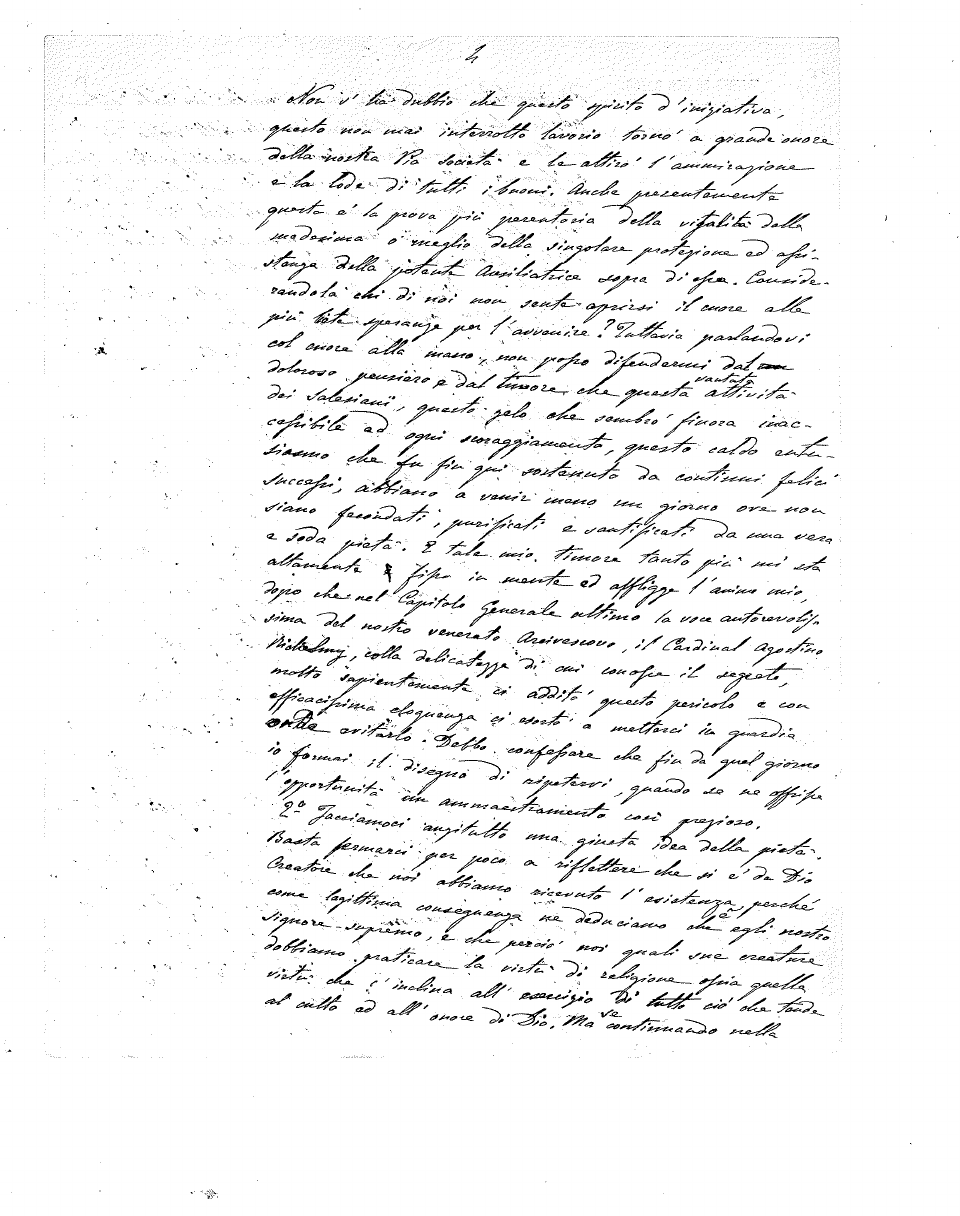 2
Non v'ha dubbio che questo spirito d'iniziativa,
questo non mai interrotto lavorio tornò a grande onore
della nostra Pia Società e le attirò l'ammirazione
e la lode di tutti i buoni. Anche presentemente
questa è la prova più perentoria della vitalità della
medesima o meglio della singolare protezione ed assi-
stenza della potente Ausiliatrice sopra di essa. Conside-
randola chi di noi non sente aprirsi il cuore alle
più liete speranze per l'avvenire? Tuttavia parlandovi
col cuore alla mano, non posso difendermi dal
doloroso pensiero e dal timore che questa vantata attività
dei Salesiani, questo zelo che sembrò finora inac-
cessibile ad ogni scoraggiamento, questo caldo entu-
siasmo che fu fin qui sostenuto da continui felici
successi, abbiano a venir meno un giorno ove non
siano fecondati, purificati e santificati da una vera
e soda pietà. E tale mio timore tanto più mi sta
altamente fisso in mente ed affligge l'animo mio,
dopo che nel Capitolo Generale ultimo la voce autorevolis-
sima del nostro venerato Arcivescovo, il Cardinal Agostino
Richelmy, colla delicatezza di cui conosce il segreto,
molto sapientemente ci additò questo pericolo e con
efficacissima eloquenza ci esortò a metterci in guardia
onde evitarlo. Debbo confessare che fin da quel giorno
io formai il disegno di ripetervi, quando se ne offrisse
l'opportunità un ammaestramento così prezioso.
2º Facciamoci anzitutto una giusta idea della pietà.
Basta fermarci per poco a riflettere che si è da Dio
Creatore che noi abbiamo ricevuto l'esistenza, perché
come legittima conseguenza ne deduciamo che egli è nostro
Signore supremo, e che perciò noi quali sue creature
dobbiamo praticare la virtù di religione ossia quella
virtù che c'inclina all'esercizio di tutto ciò che tende
al culto ed all'onore di Dio. Ma se continuando nella